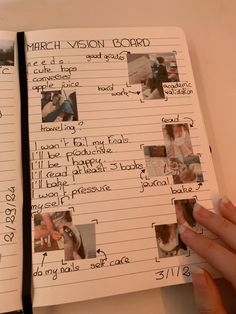 MARCH VISION BOARD
needs
cute tops
converses
apple juice
good grades
hard work
academic validation
traveling?
read
I won't fail my finals
I'll be productive
I'll be happy
I'll read at least 3 books
I'll bake
I won't pressure myself
journal
bake
do my nails
self care
2/29/24
3/1/2